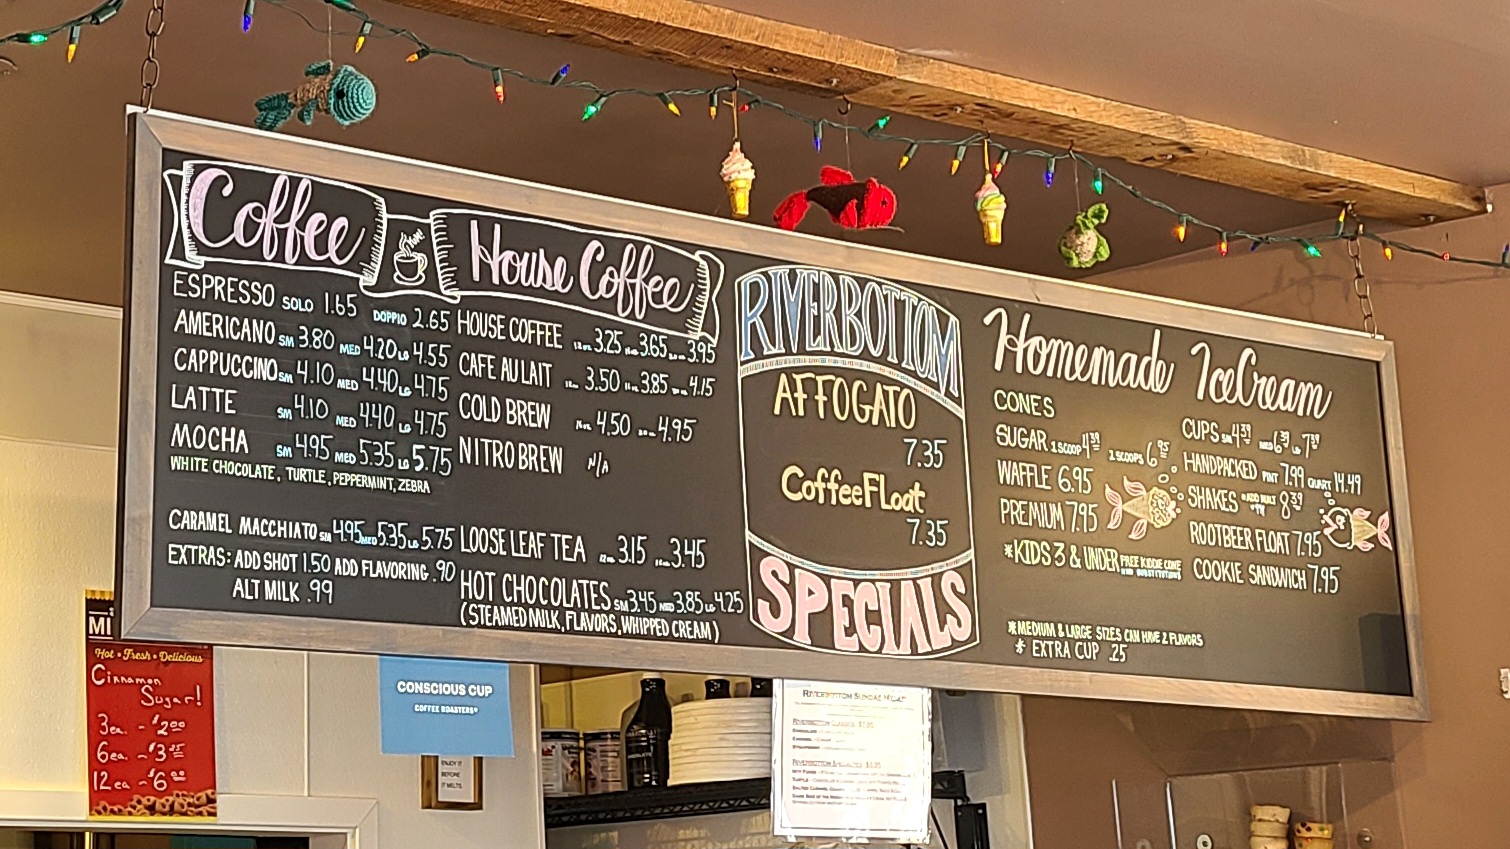 Coffee
yum!
House Coffee
ESPRESSO SOLO 1.65 DOPPIO 2.65
AMERICANO SM 3.80 MED 4.20 LG 4.55
CAPPUCCINO SM 4.10 MED 4.40 LG 4.75
LATTE SM 4.10 MED 4.40 LG 4.75
MOCHA SM 4.95 MED 5.35 LG 5.75
WHITE CHOCOLATE, TURTLE, PEPPERMINT, ZEBRA
CARAMEL MACCHIATO SM 4.95 MED 5.35 LG 5.75
EXTRAS: ADD SHOT 1.50 ADD FLAVORING .90
ALT MILK .99
HOUSE COFFEE 12oz 3.25 3.65 3.95
CAFE AU LAIT 3.50 3.85 4.15
COLD BREW 4.50 4.95
NITRO BREW N/A
LOOSE LEAF TEA 3.15 3.45
HOT CHOCOLATES SM 3.45 MED 3.85 LG 4.25
(STEAMED MILK, FLAVORS, WHIPPED CREAM)
RIVERBOTTOM
AFFOGATO
7.35
Coffee Float
7.35
SPECIALS
Homemade Ice Cream
CONES
SUGAR 1 SCOOP 4.39 2 SCOOPS 6.95
WAFFLE 6.95
PREMIUM 7.95
*KIDS 3 & UNDER FREE KIDDIE CONE
NO SUBSTITUTIONS
CUPS SM 4.39 MED 6.39 LG 7.39
HANDPACKED PINT 7.99 QUART 14.49
SHAKES *ADD MALT 8.39
ROOTBEER FLOAT 7.95
COOKIE SANDWICH 7.95
*MEDIUM & LARGE SIZES CAN HAVE 2 FLAVORS
* EXTRA CUP .25
Hot • Fresh • Delicious
Cinnamon
Sugar!
3ea. - $2.00
6ea. - $3.25
12ea - $6.00
CONSCIOUS CUP
COFFEE ROASTERS
ENJOY IT
BEFORE
IT MELTS
RIVERBOTTOM SUNDAE MENU
RIVERBOTTOM CLASSICS
RIVERBOTTOM SPECIALTIES